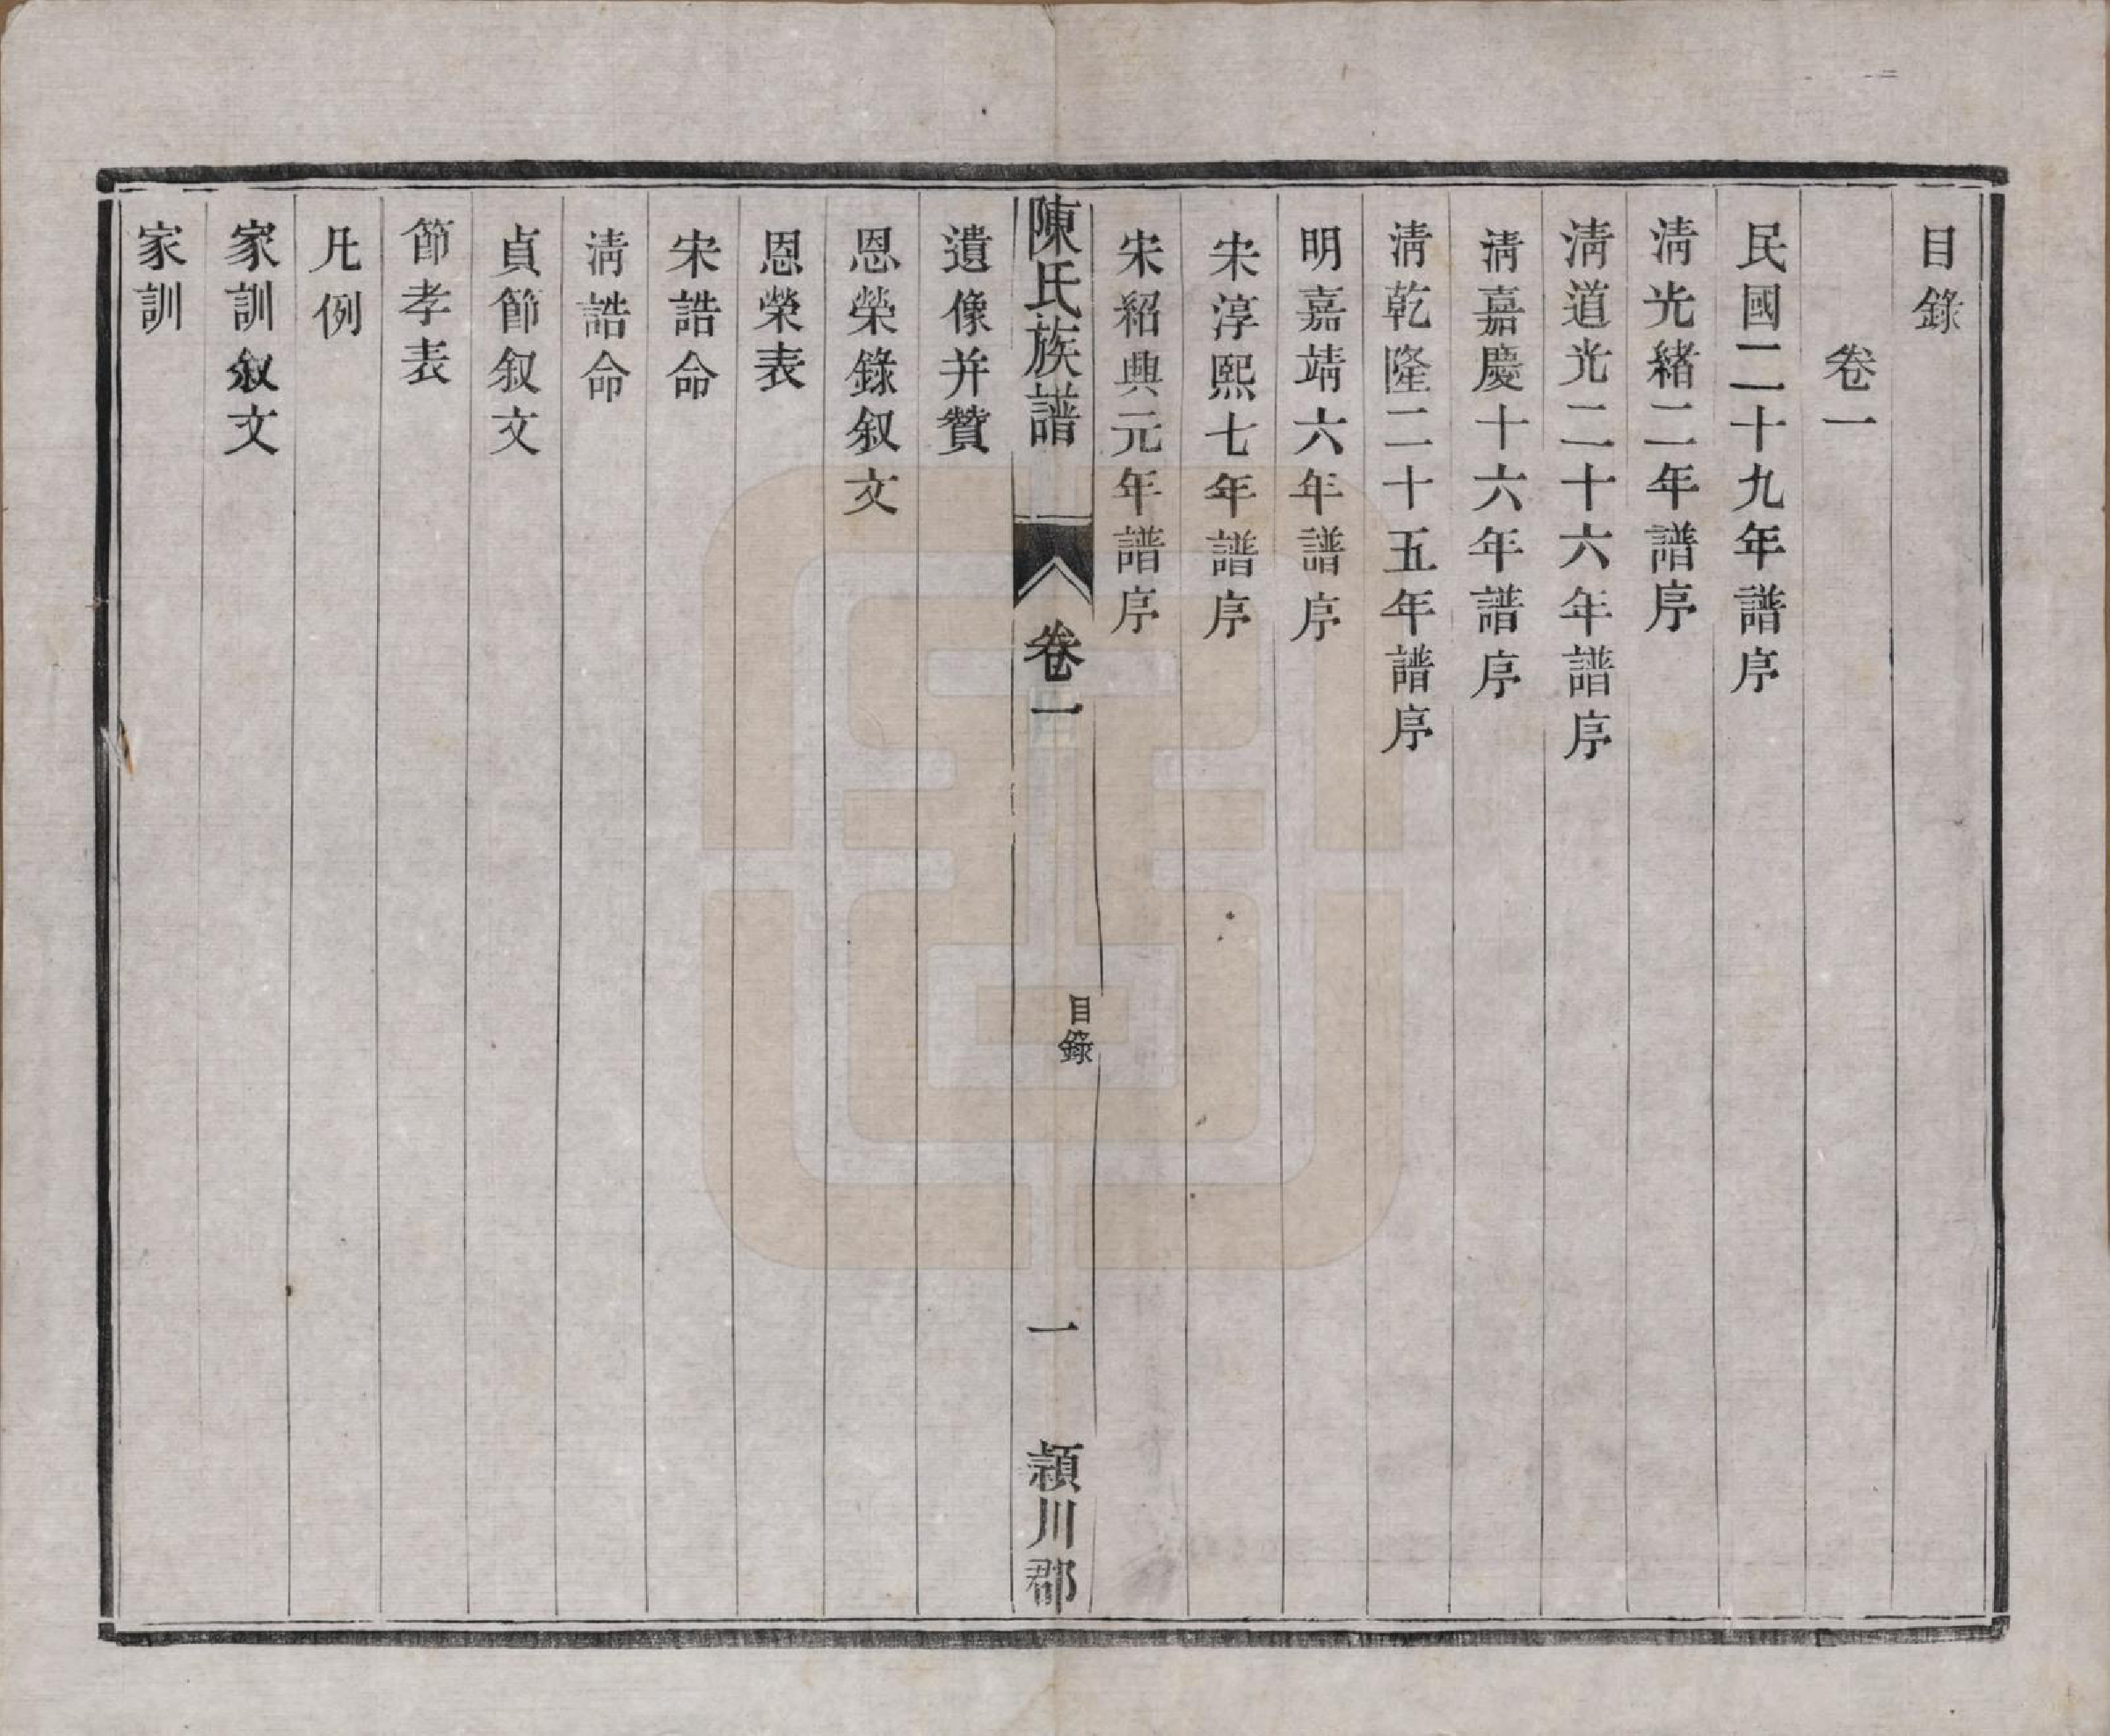 目錄
卷一
民國二十九年譜序
淸光緖二年譜序
淸道光二十六年譜序
淸嘉慶十六年譜序
淸乾隆二十五年譜序
明嘉靖六年譜序
宋淳熙七年譜序
宋紹興元年譜序
陳氏族譜
卷一
目錄
一
潁川郡
遺像并贊
恩榮錄叙文
恩榮表
宋誥命
淸誥命
貞節叙文
節孝表
凡例
家訓叙文
家訓